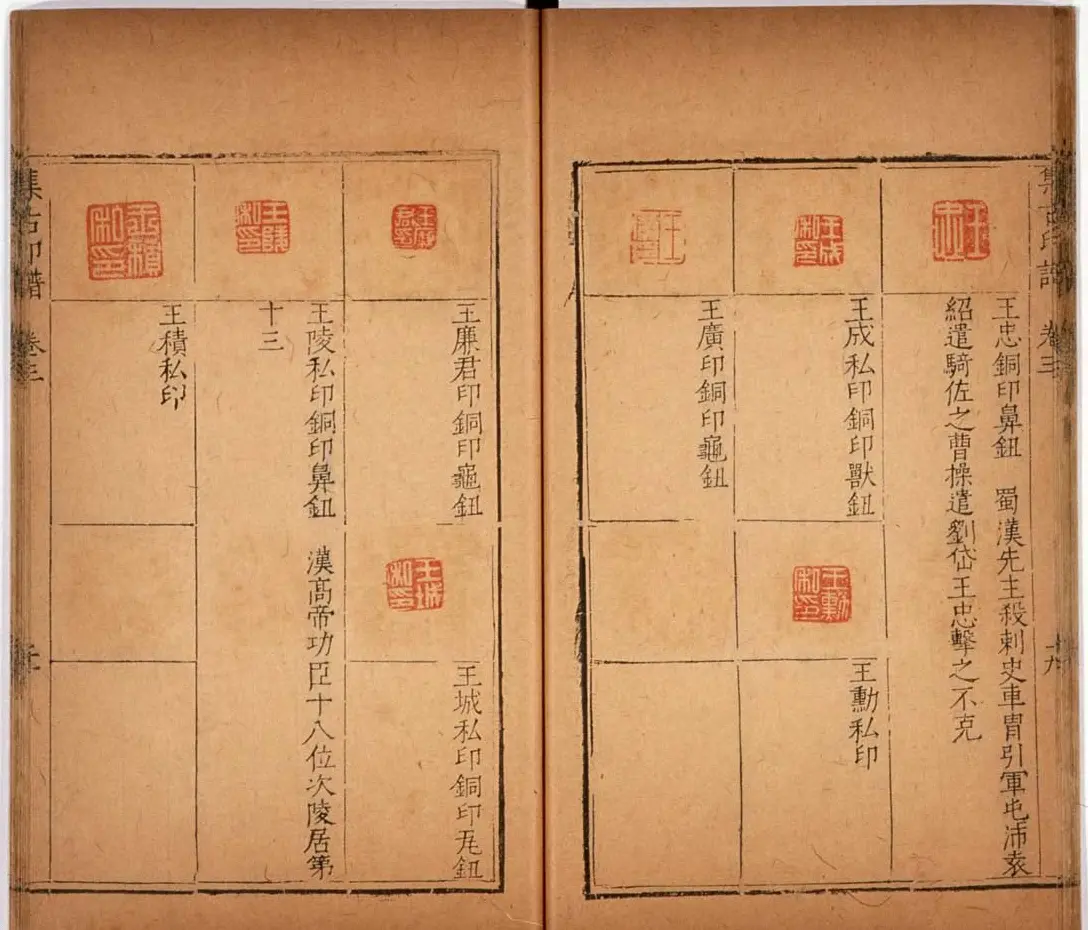 集古印譜
卷三
王忠
王忠銅印鼻鈕 蜀漢先主殺刺史車冑引軍屯沛袁
紹遣騎佐之曹操遣劉岱王忠擊之不克
王成私印
王成私印銅印獸鈕
王勳私印
王勳私印
王廣印
王廣印銅印龜鈕
王廉君印
王廉君印銅印龜鈕
王城私印
王城私印銅印瓦鈕
王陵私印
王陵私印銅印鼻鈕 漢高帝功臣十八位次陵居第
十三
王積私印
王積私印
集古印譜
卷三